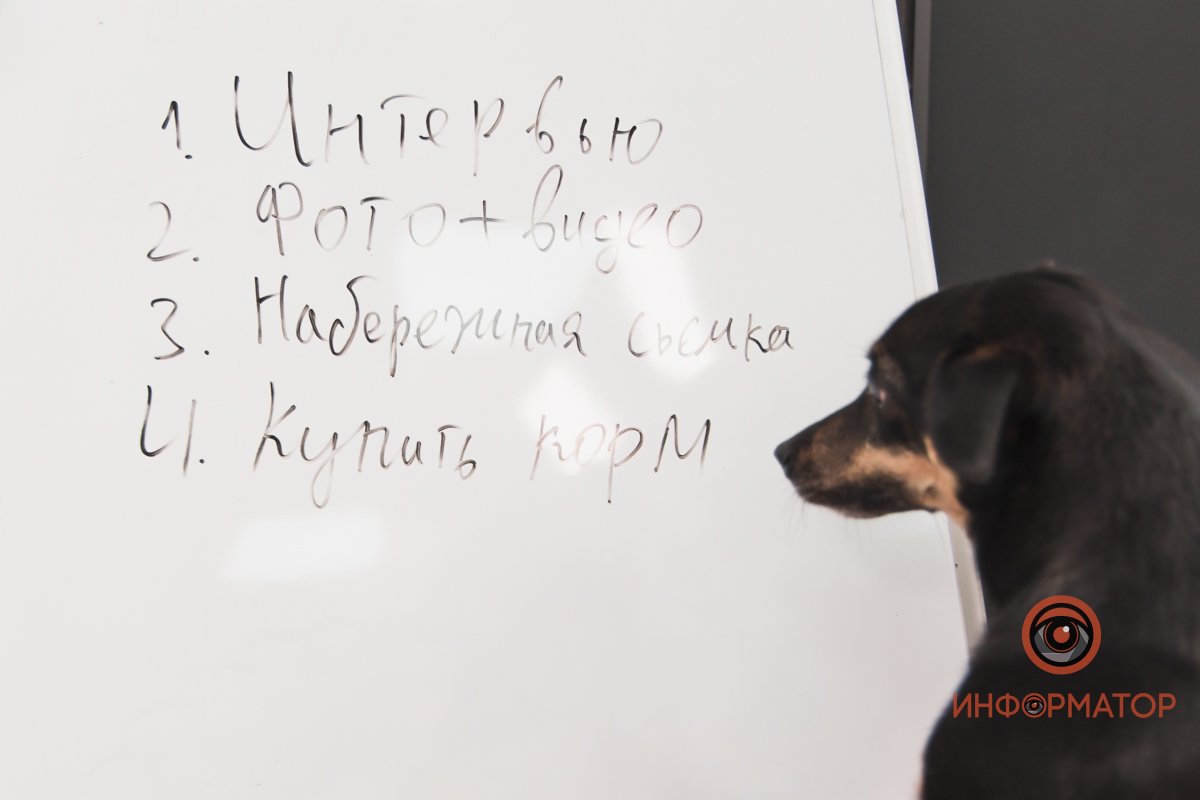 1. Интервью
2. Фото + видео
3. Набережная сьемка
4. Купить корм
ИНФОРМАТОР